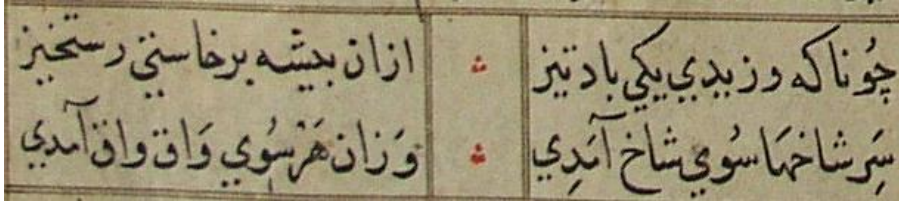 چُوناکه وزیدي یکي باد تیز ازان بیشه برخاستي رستخیز
سَرِ شاخها سُوي شاخ آمَدِي وَزان هَرْ سُوي وَاق واق آمدي